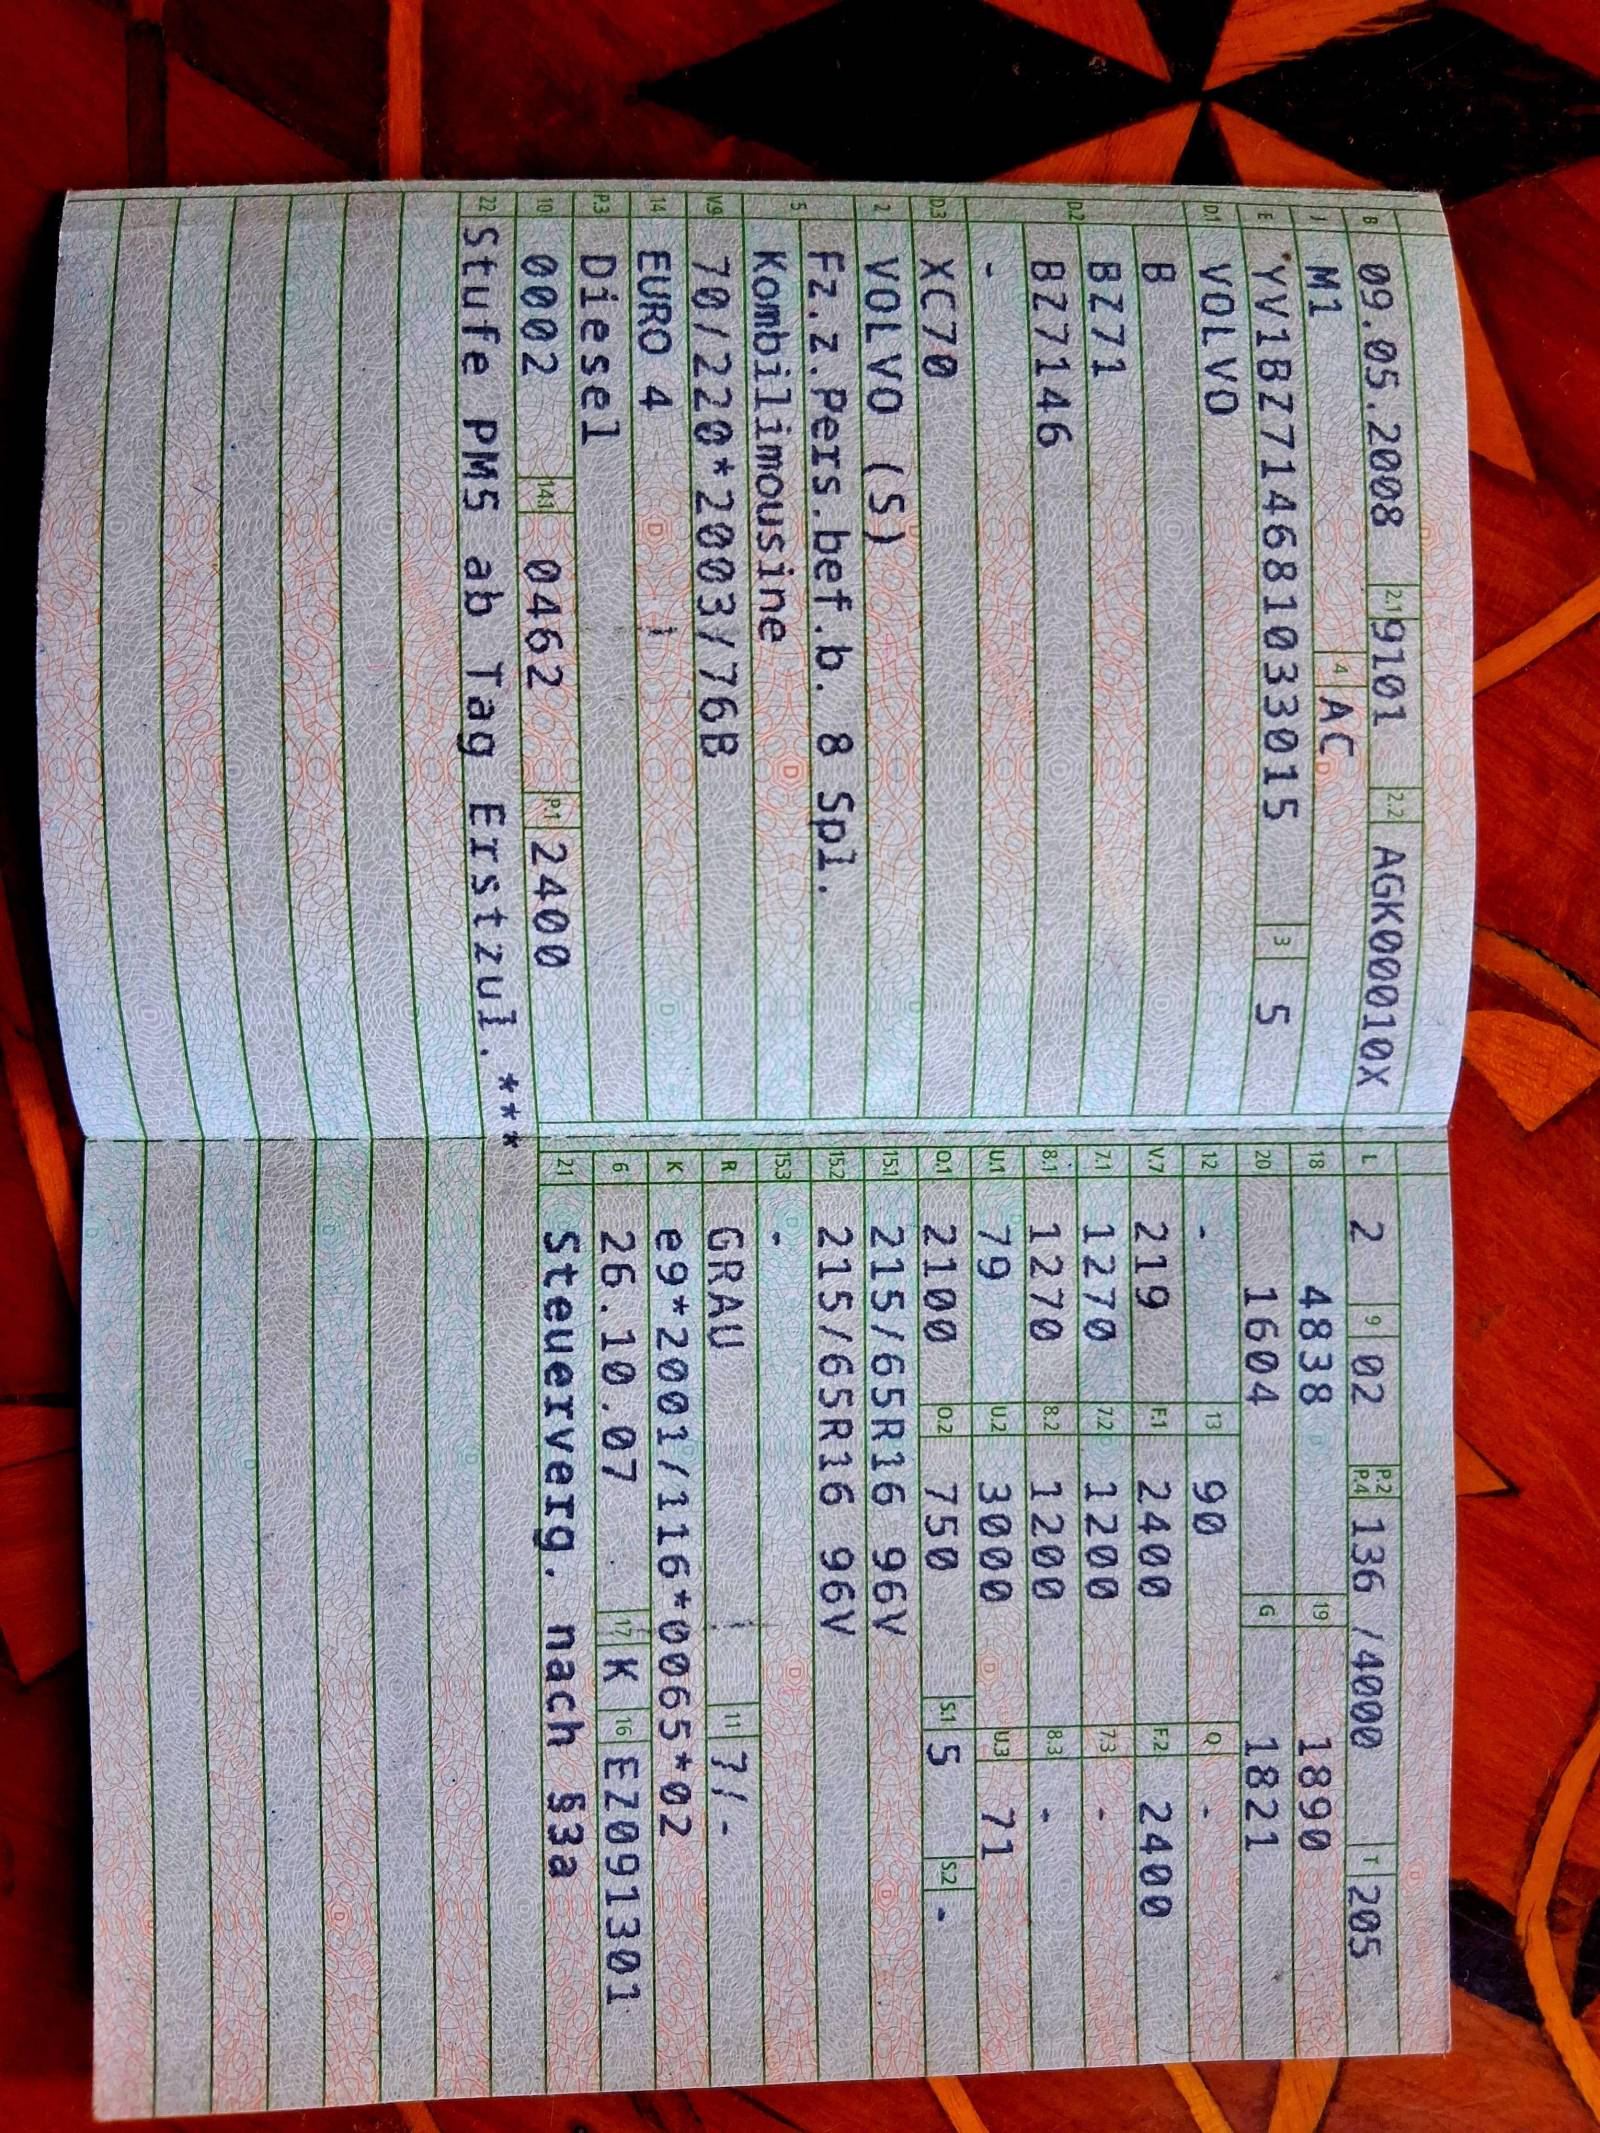 B 09.05.2008 2.1 9101 2.2 AGK000010X
J M1 4 AC
E YV1BZ714681033015 3 5
D.1 VOLVO
D.2 B
BZ71
BZ7146
-
D.3 XC70
2 VOLVO (S)
5 Fz.z.Pers.bef.b. 8 Spl.
Kombilimousine
V.9 70/220*2003/76B
14 EURO 4
P.3 Diesel
10 0002 14.1 0462 P.1 2400
22 Stufe PM5 ab Tag Erstzul.***
L 2 9 02 P.2 P.4 136 /4000 T 205
18 4838 19 1890
20 1604 G 1821
12 - 13 90 Q -
V.7 219 F.1 2400 F.2 2400
7.1 1270 7.2 1200 7.3 -
8.1 1270 8.2 1200 8.3 -
U.1 79 U.2 3000 U.3 71
O.1 2100 O.2 750 S.1 5 S.2 -
15.1 215/65R16 96V
15.2 215/65R16 96V
15.3 -
R GRAU 11 7/-
K e9*2001/116*0065*02
6 26.10.07 17 K 16 EZ091301
21 Steuerverg. nach §3a